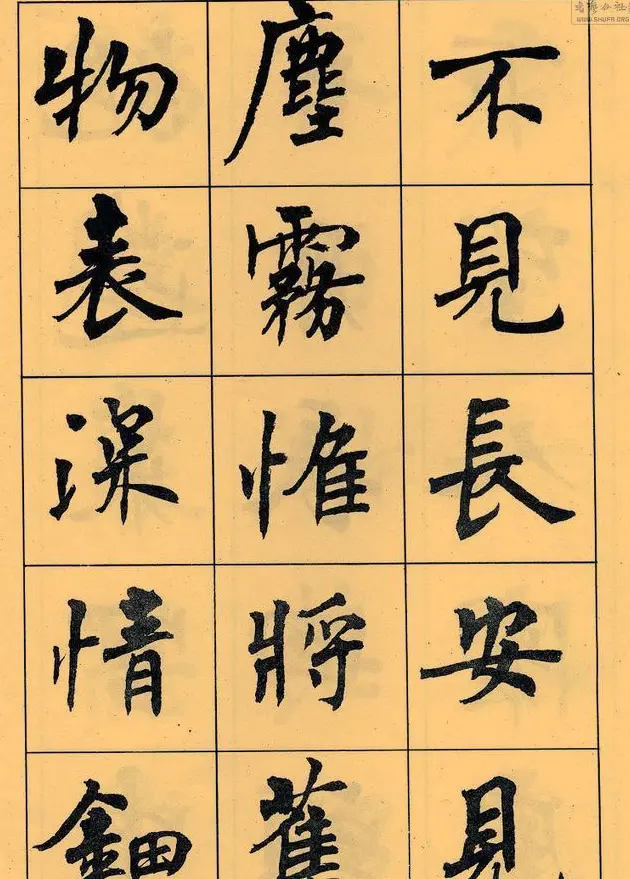 不見長安見
塵霧惟將舊
物表深情鈿
WWW.SHUFA.ORG